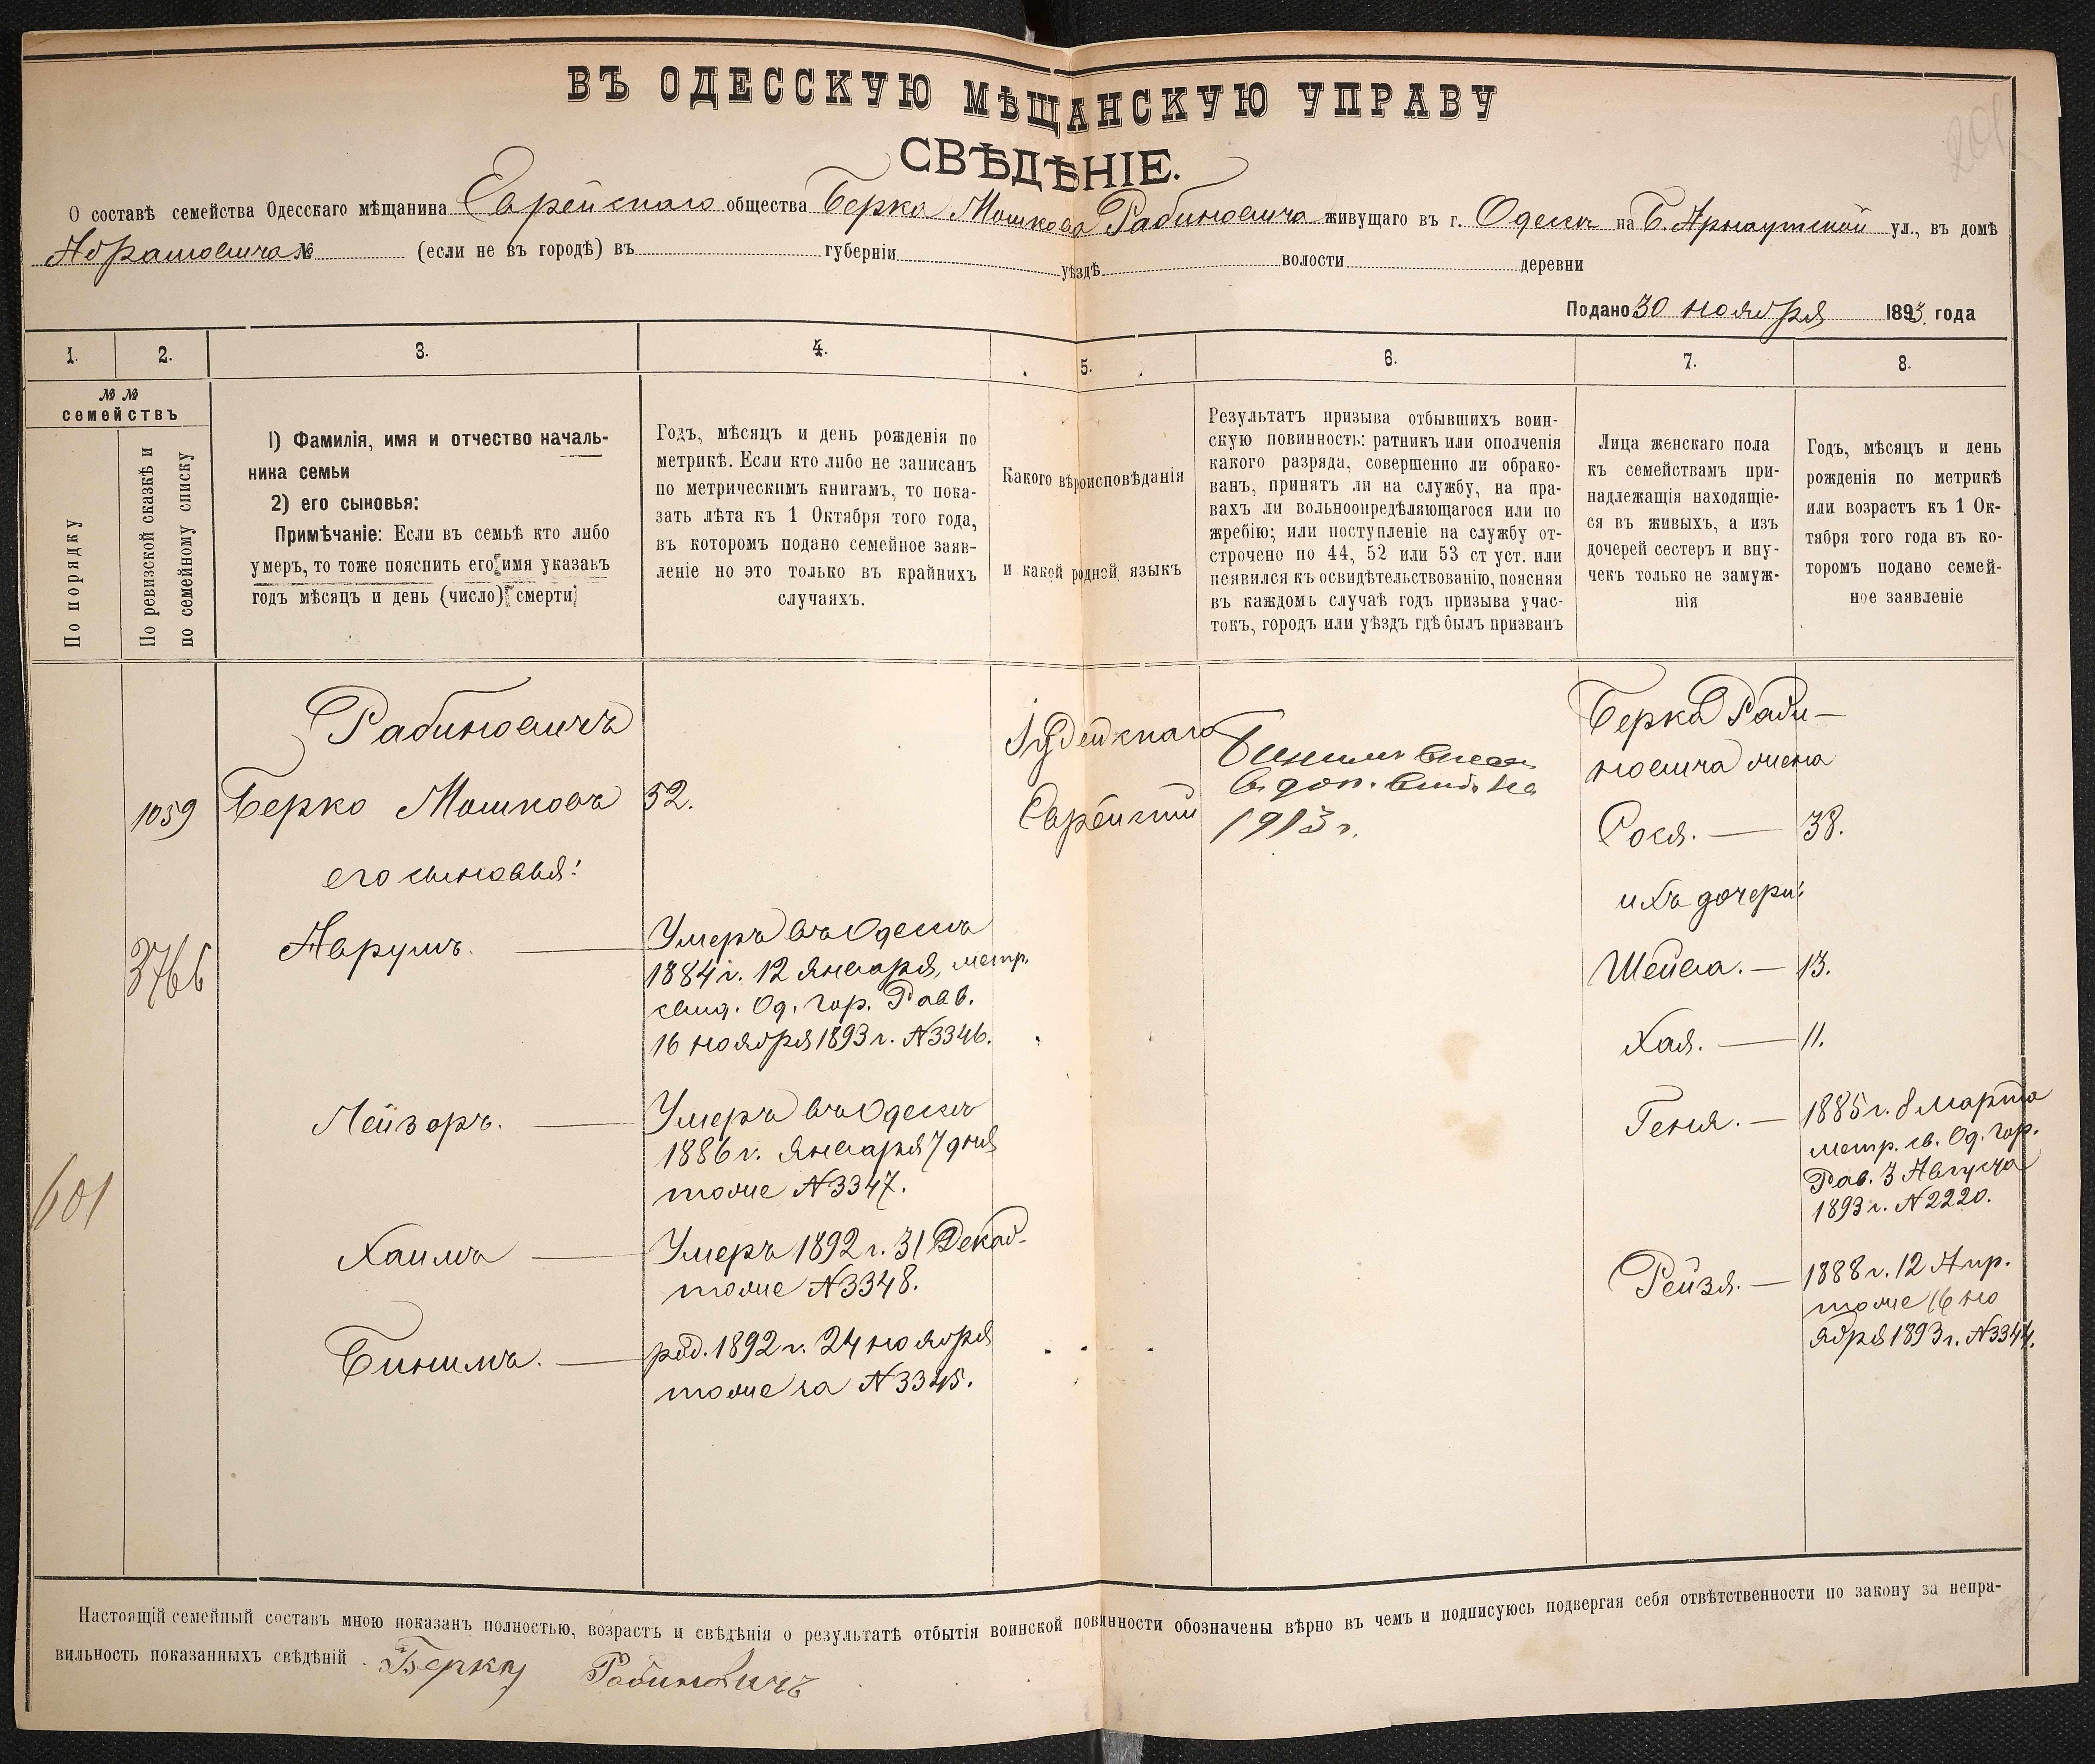 201
ВЪ ОДЕССКУЮ МѢЩАНСКУЮ УПРАВУ
СВѢДѢНІЕ.
О составѣ семейства Одесскаго мѣщанина Еврейскаго общества Берка Мошкова Рабиновича живущаго въ г. Одессѣ на Б. Арнаутской ул., въ домѣ
Абрамовича № (если не въ городѣ) въ губерніи уѣздѣ волости деревни
Подано 30 ноября 1893 года
1. 2. 3. 4. 5. 6. 7. 8.
№ №
семействъ
По порядку
По ревизской сказкѣ и
по семейному списку
1) Фамилія, имя и отчество началь-
ника семьи
2) его сыновья:
Примѣчаніе: Если въ семьѣ кто либо
умеръ, то тоже пояснить его имя указавъ
годъ мѣсяцъ и день (число) смерти
Годъ, мѣсяцъ и день рожденія по
метрикѣ. Если кто либо не записанъ
по метрическимъ книгамъ, то пока-
зать лѣта къ 1 Октября того года,
въ которомъ подано семейное заяв-
леніе но это только въ крайнихъ
случаяхъ.
Какого вѣроисповѣданія
и какой родной языкъ
Результатъ призыва отбывшихъ воин-
скую повинность: ратникъ или ополченія
какого разряда, совершенно ли обрако-
ванъ, принятъ ли на службу, на пра-
вахъ ли вольноопредѣляющагося или по
жребію; или поступленіе на службу от-
строчено по 44, 52 или 53 ст уст. или
неявился къ освидѣтельствованію, поясняя
въ каждомъ случаѣ годъ призыва учас-
токъ, городъ или уѣздъ гдѣ былъ призванъ
Лица женскаго пола
къ семействамъ при-
надлежащія находящіе-
ся въ живыхъ, а изъ
дочерей сестеръ и вну-
чекъ только не замуж-
нія
Годъ, мѣсяцъ и день
рожденія по метрикѣ
или возрастъ къ 1 Ок-
тября того года въ ко-
торомъ подано семей-
ное заявленіе
Рабиновичъ
1059 Берко Мошковъ 52.
его сыновья:
3766
Аврумъ. —
Умеръ въ Одессѣ
1884 г. 12 января, метр.
свид. Од. Гор. Равв.
16 ноября 1893 г. N 3346.
Лейзоръ. —
Умеръ въ Одессѣ
1886 г. января 7 дня
тоже N 3347.
601
Хаимъ —
Умеръ 1892 г. 31 Декаб.
тоже N 3348.
Бинимъ. —
род. 1892 г. 24 ноября
тоже за N 3345.
Іудейскаго
Еврейскій
Бинимъ
в доп.
1913 г.
Берка Раби-
новича жена
Рося. — 38.
ихъ дочери:
Шейва. — 13.
Хая. — 11.
Геня. —
1885 г. 8 Марта
метр. св. Од. Гор.
Рав. 3 Августа
1893 г. N 2220.
Рейзя. —
1888 г. 12 Апр.
тоже 16 но
ября 1893 г. N 3344.
Настоящій семейный составъ мною показанъ полностью, возрастъ и свѣдѣнія о результатѣ отбытія воинской повинности обозначены вѣрно въ чемъ и подписуюсь подвергая себя отвѣтственности по закону за непра-
вильность показанныхъ свѣдѣній Берку Рабиновичъ